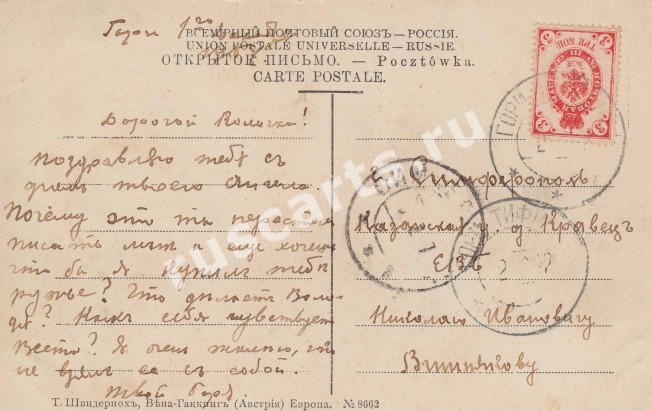 Гори 1го
ВСЕМІРНЫЙ ПОЧТОВЫЙ СОЮЗЪ — РОССІЯ.
UNION POSTALE UNIVERSELLE — RUSSIE.
ОТКРЫТОЕ ПИСЬМО. — Pocztówka.
CARTE POSTALE.
Дорогой Количка!
поздравляю тебя съ
днемъ твоего ангела.
Почему это ты пересталъ
писать мнѣ а еще хочешь
что бы я купилъ тебѣ
ружье? Что дѣлаетъ Воло
дя? Какъ себя чувствуетъ
Веста? Я очень жалѣю, что
не взялъ ее съ собой.
твой Боря.
Симферополь
Казанская у. д Кравецъ
ЕВБ
Николаю Ивановичу
3
ТРИ КОП.
3
ГОРИ
ТИФЛ
ruscarts.ru
Т. Швидернохъ, Вѣна-Гаккингъ (Австрія) Европа. № 8662